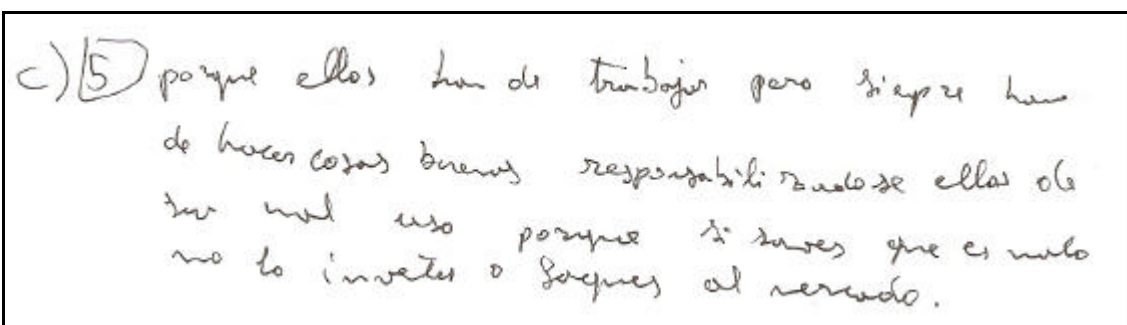 c) 5 porque ellos han de trabajar pero siepre han
de hacer cosas buenas responsabilizandose ellos de
su mal uso porque si saves que es malo
no lo inventes o saques al mercado.